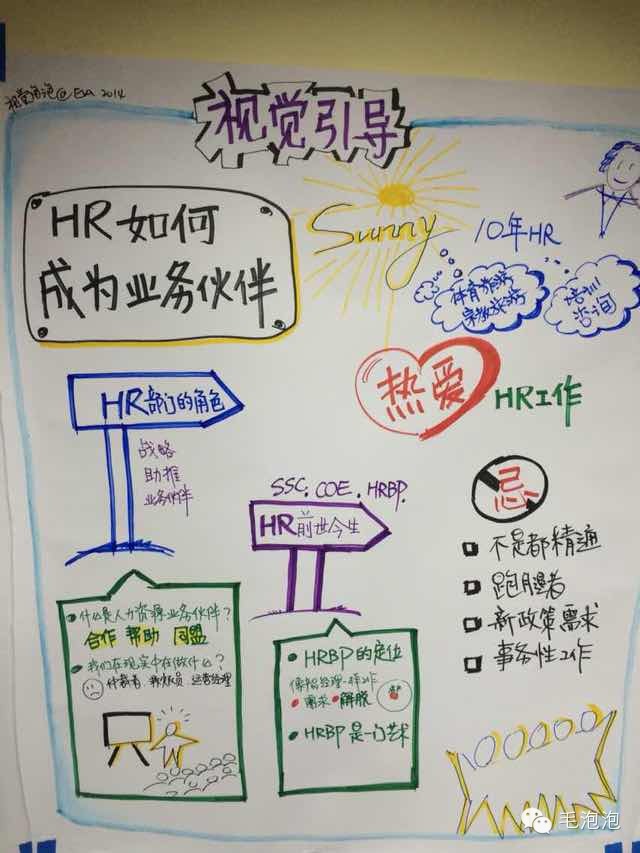 视觉引导
@Eva 2014
HR如何
成为业务伙伴
Sunny
10年HR
体育旅游
宗教旅游
培训
咨询
热爱
HR工作
HR部门的角色
战略
助推
业务伙伴
SSC. COE. HRBP.
HR前世今生
忌
不是都精通
跑腿者
新政策需求
事务性工作
什么是人力资源业务伙伴?
合作 帮助 同盟
我们在现实中在做什么?
仲裁者、救火员、运营经理
HRBP的定位
像销经理一样工作
需求 解脱
HRBP是一门艺术
毛泡泡